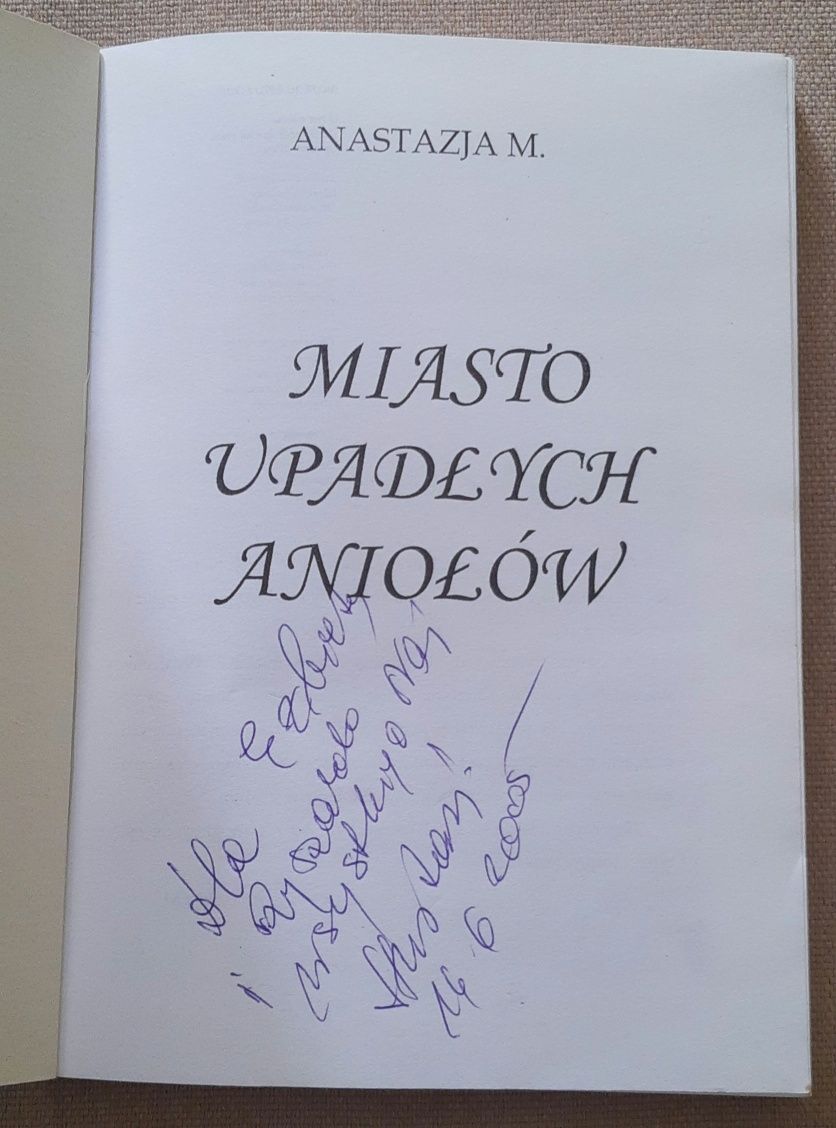 ANASTAZJA M.
MIASTO
UPADŁYCH
ANIOŁÓW
Dla Elżbiety
i Ryszarda
wszystkiego naj
14 6 2005